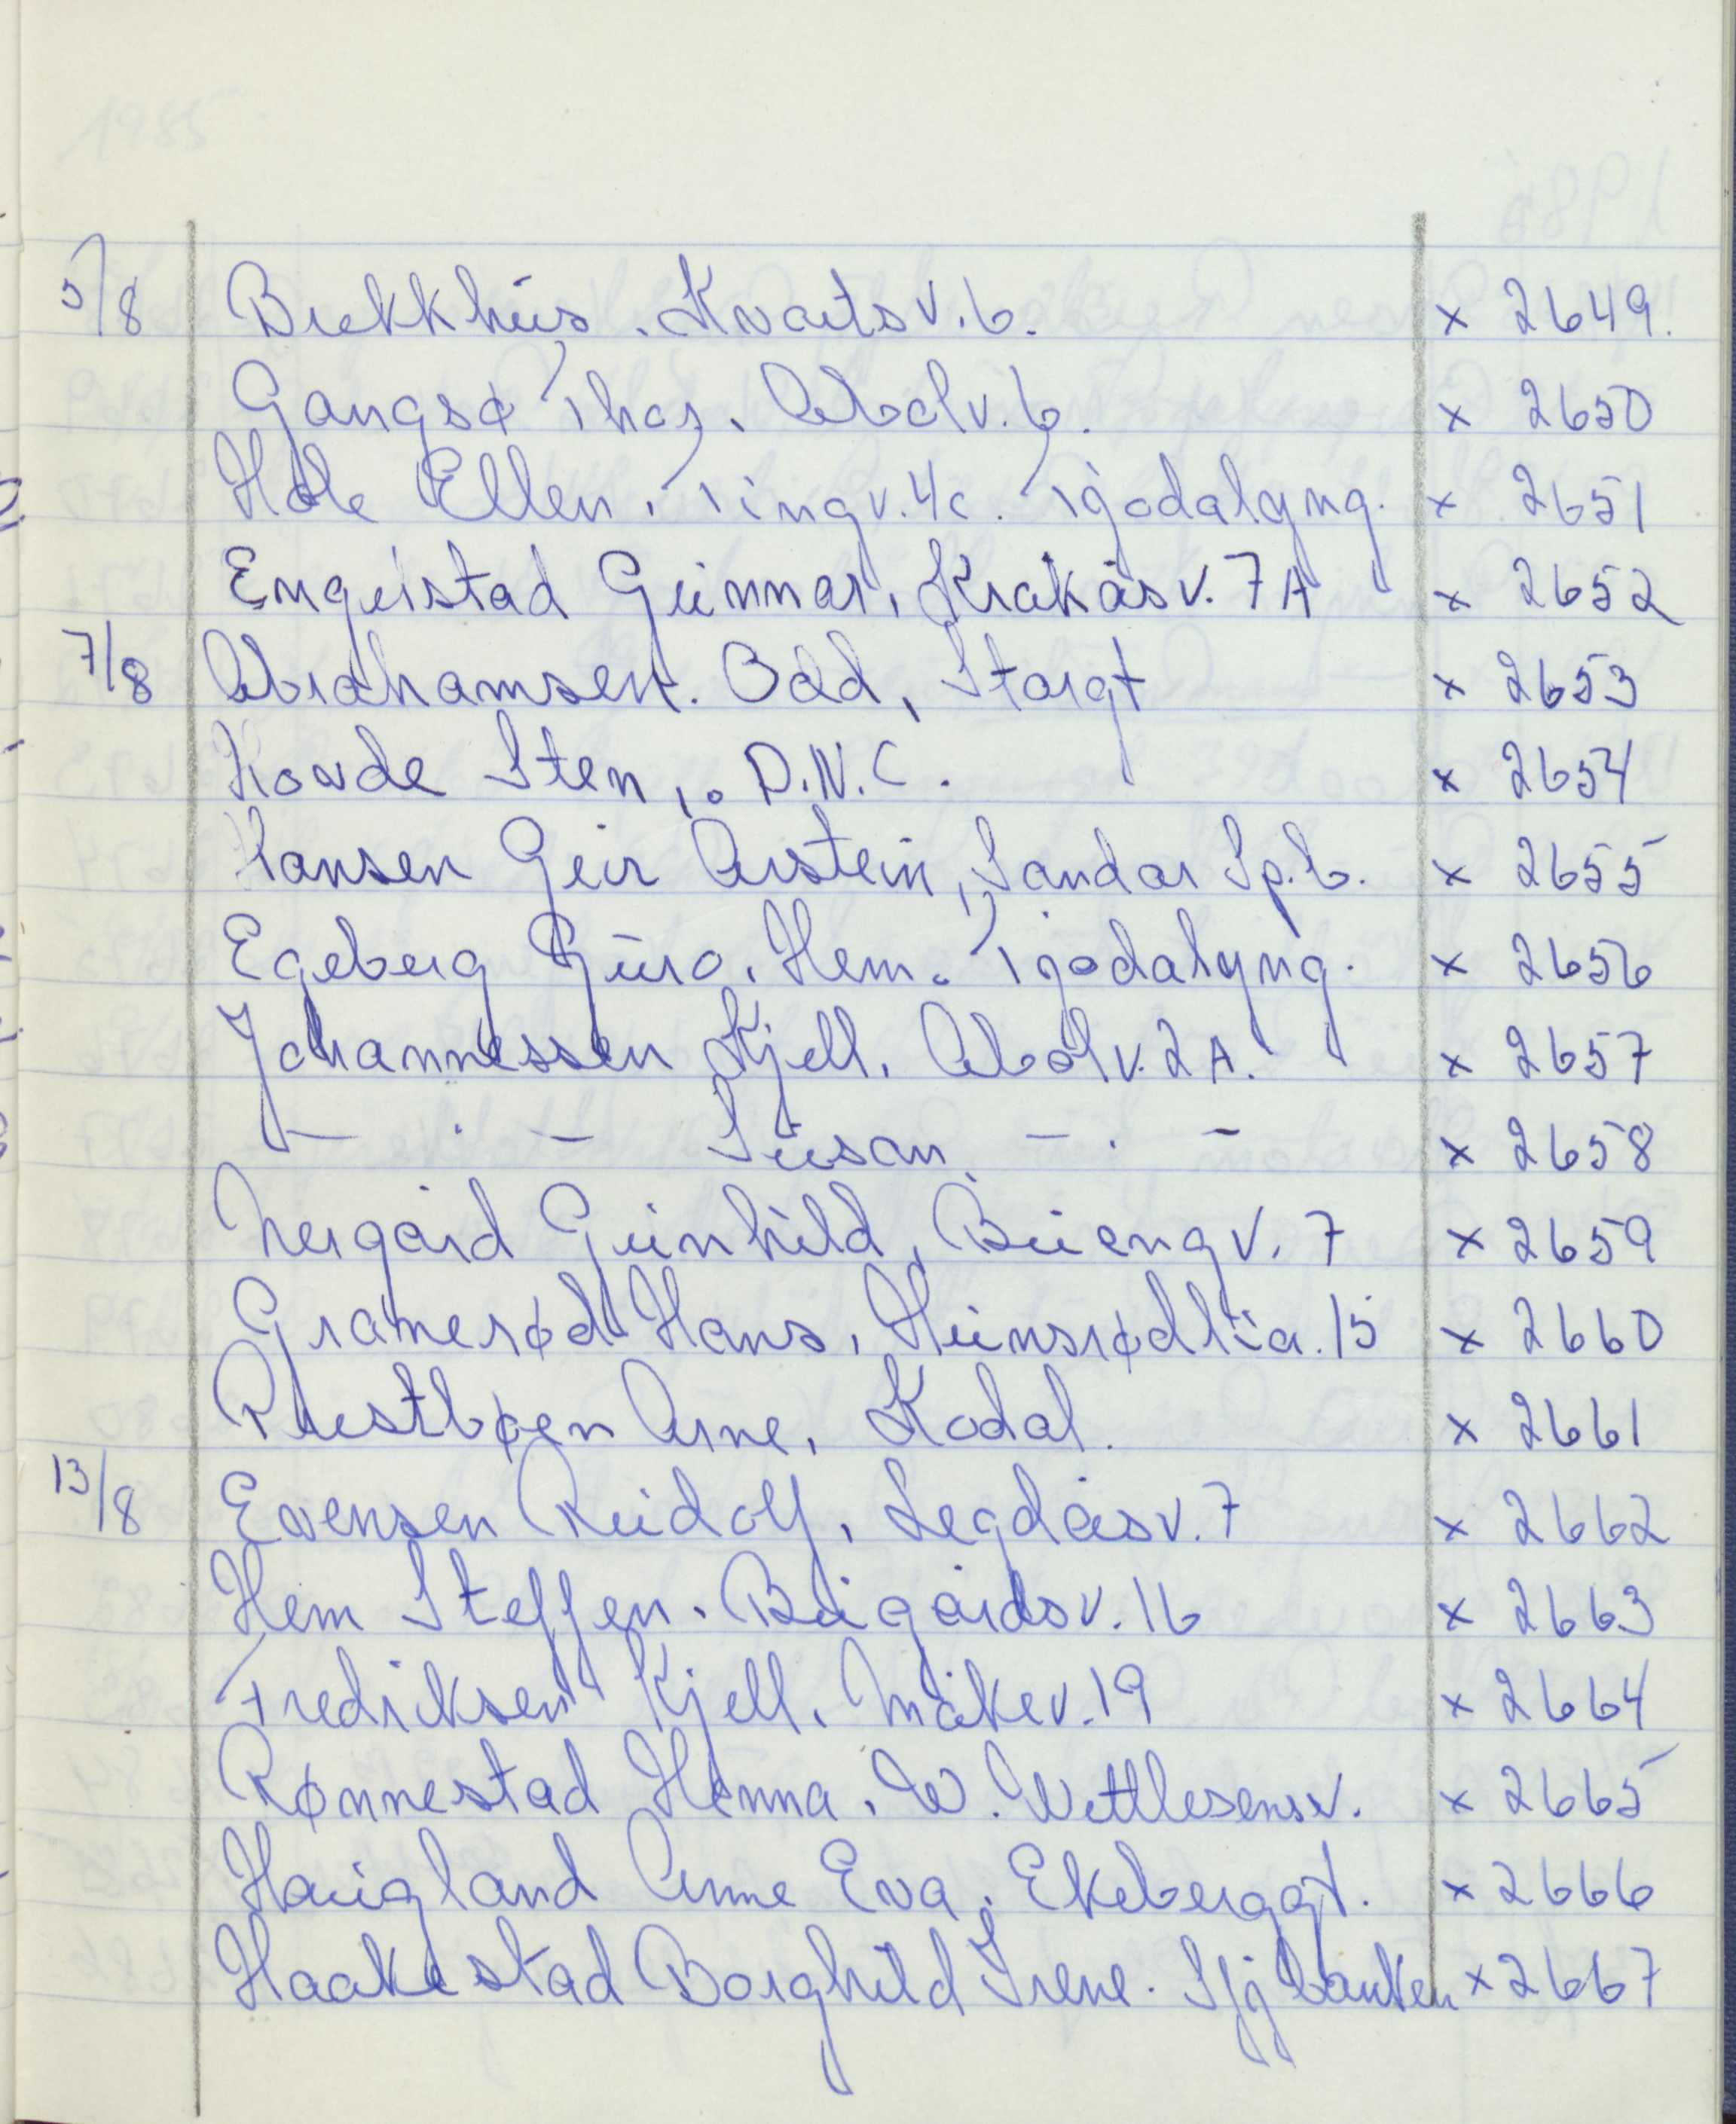 5/8 Brekkhus. Kvartsv. 6. x 2649.
Gangsø Thor. Abolv. 6. x 2650
Hole Ellen. Tingv. 4c. Tjodalyng. x 2651
Engelstad Gunnar, Kråkåsv. 7A x 2652
7/8 Abrahamsen. Odd, Storgt x 2653
Hovde Sten,. D.N.C. x 2654
Hansen Geir Arstein, Sandar Sp.b. x 2655
Egeberg Guro. Hem. Tjodalyng. x 2656
Johannessen Kjell. Abolv. 2A. x 2657
— . — Susan. — . — x 2658
Nergård Gunhild, Buengv. 7 x 2659
Granerød Hans, Hunsrødlia. 15 x 2660
Prestbøen Arne, Kodal. x 2661
13/8 Evensen Rudolf, Legdåsv. 7 x 2662
Hem Steffen. Bugårdsv. 16 x 2663
Fredriksen Kjell. Måkev. 19 x 2664
Rønnestad Henna. W. Wettlesensv. x 2665
Haugland Anne Eva. Ekeberggt. x 2666
Haakestad Borghild Irene. Sfjbanken x 2667